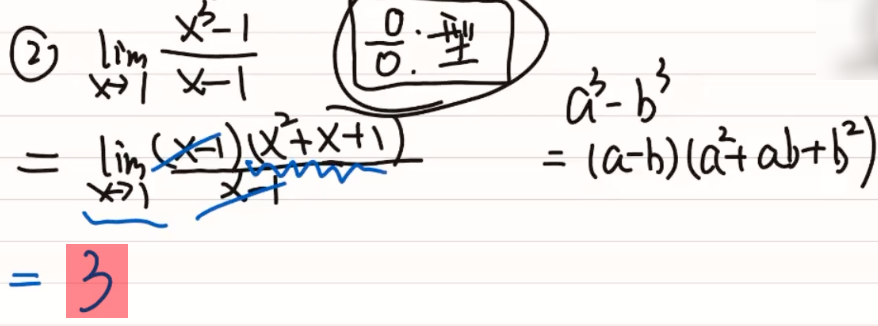 ② lim x→1 (x³-1)/(x-1) 0/0:型
a³-b³
= lim x→1 (x-1)(x²+x+1)/(x-1) = (a-b)(a²+ab+b²)
= 3